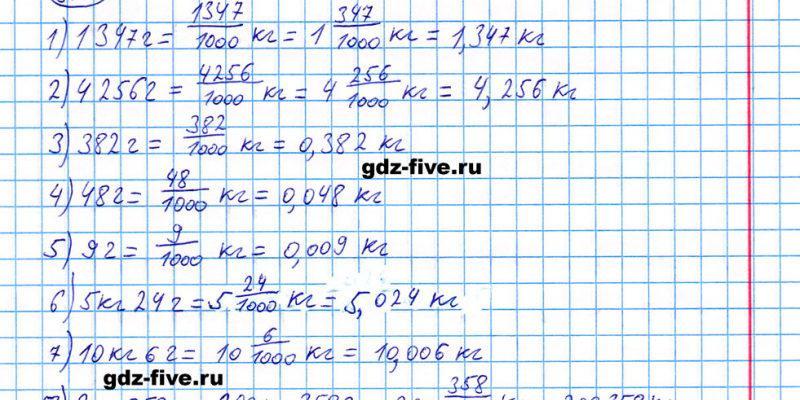 1) 1347г = 1347/1000 кг = 1 347/1000 кг = 1,347 кг
2) 4256г = 4256/1000 кг = 4 256/1000 кг = 4,256 кг
3) 382г = 382/1000 кг = 0,382 кг
gdz-five.ru
4) 48г = 48/1000 кг = 0,048 кг
5) 9г = 9/1000 кг = 0,009 кг
6) 5кг 24г = 5 24/1000 кг = 5,024 кг
7) 10кг 6г = 10 6/1000 кг = 10,006 кг
gdz-five.ru
358